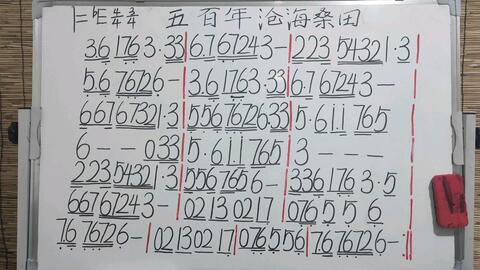 1=♭E 4/4 2/4 五百年沧海桑田
36 1763·33|67 67243-|223 54321·3|
56 76726-|36 1763·33|67 67243-|
667 67321·3|556 7672633|5·61i 765|
6---033|5·61i 765|3---|
223 54321·3|556 7656-|336 1763·5|
667 67243-|0213 0217|0765 5 6|
76 76726-|0213 0217|076556|76 76726-:||